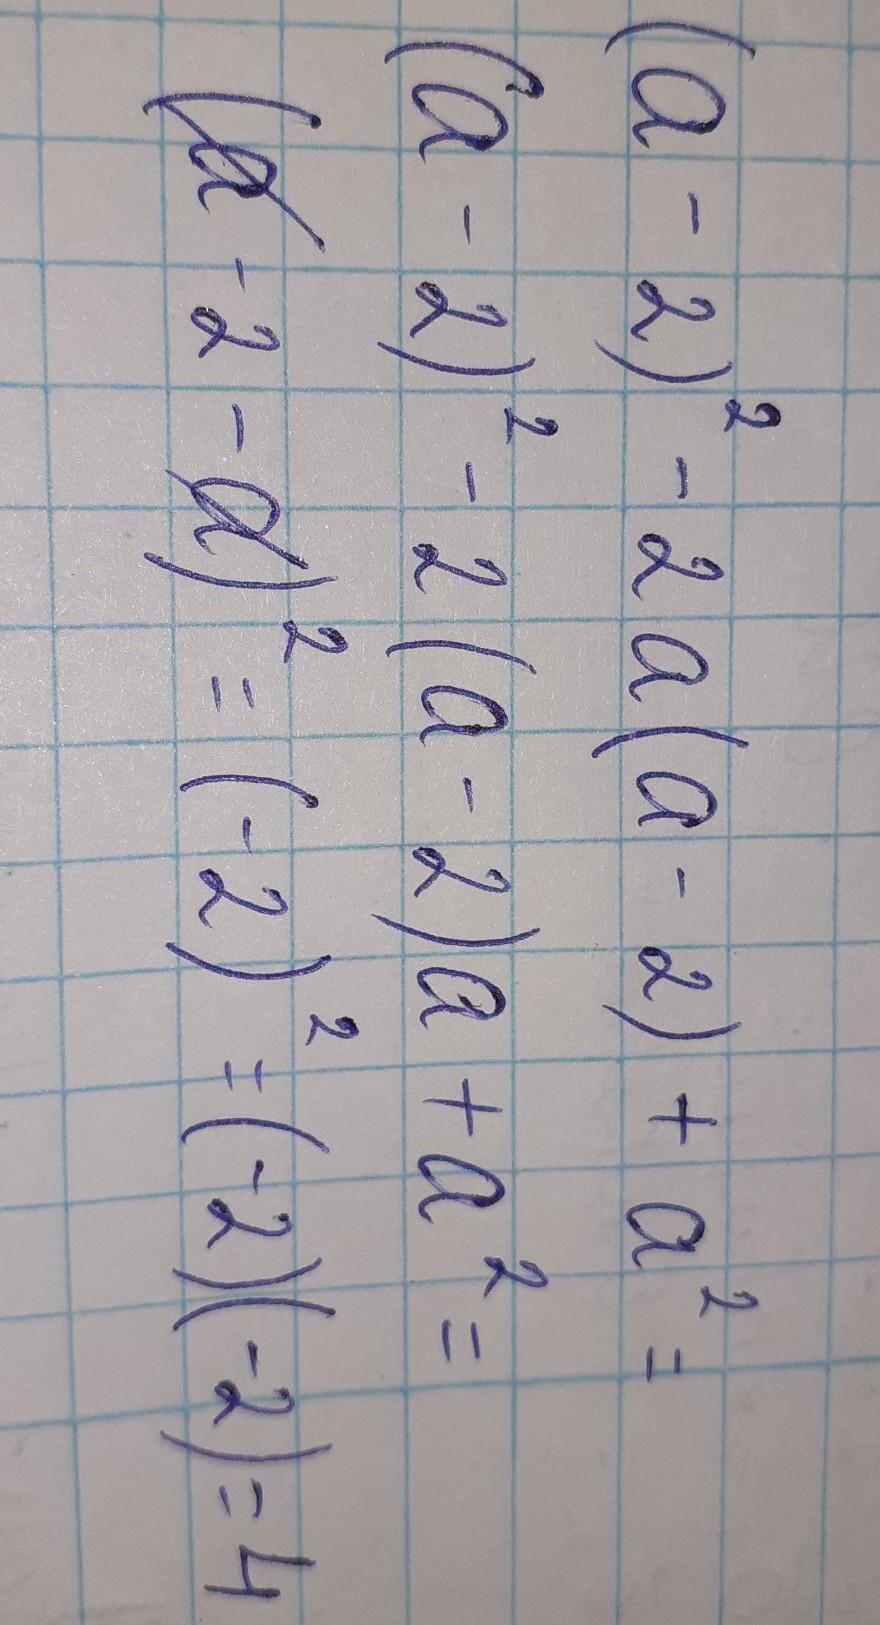 (a - 2)² - 2a(a - 2) + a² =
(a - 2)² - 2(a - 2)a + a² =
(a - 2 - a)² = (-2)² = (-2)(-2) = 4